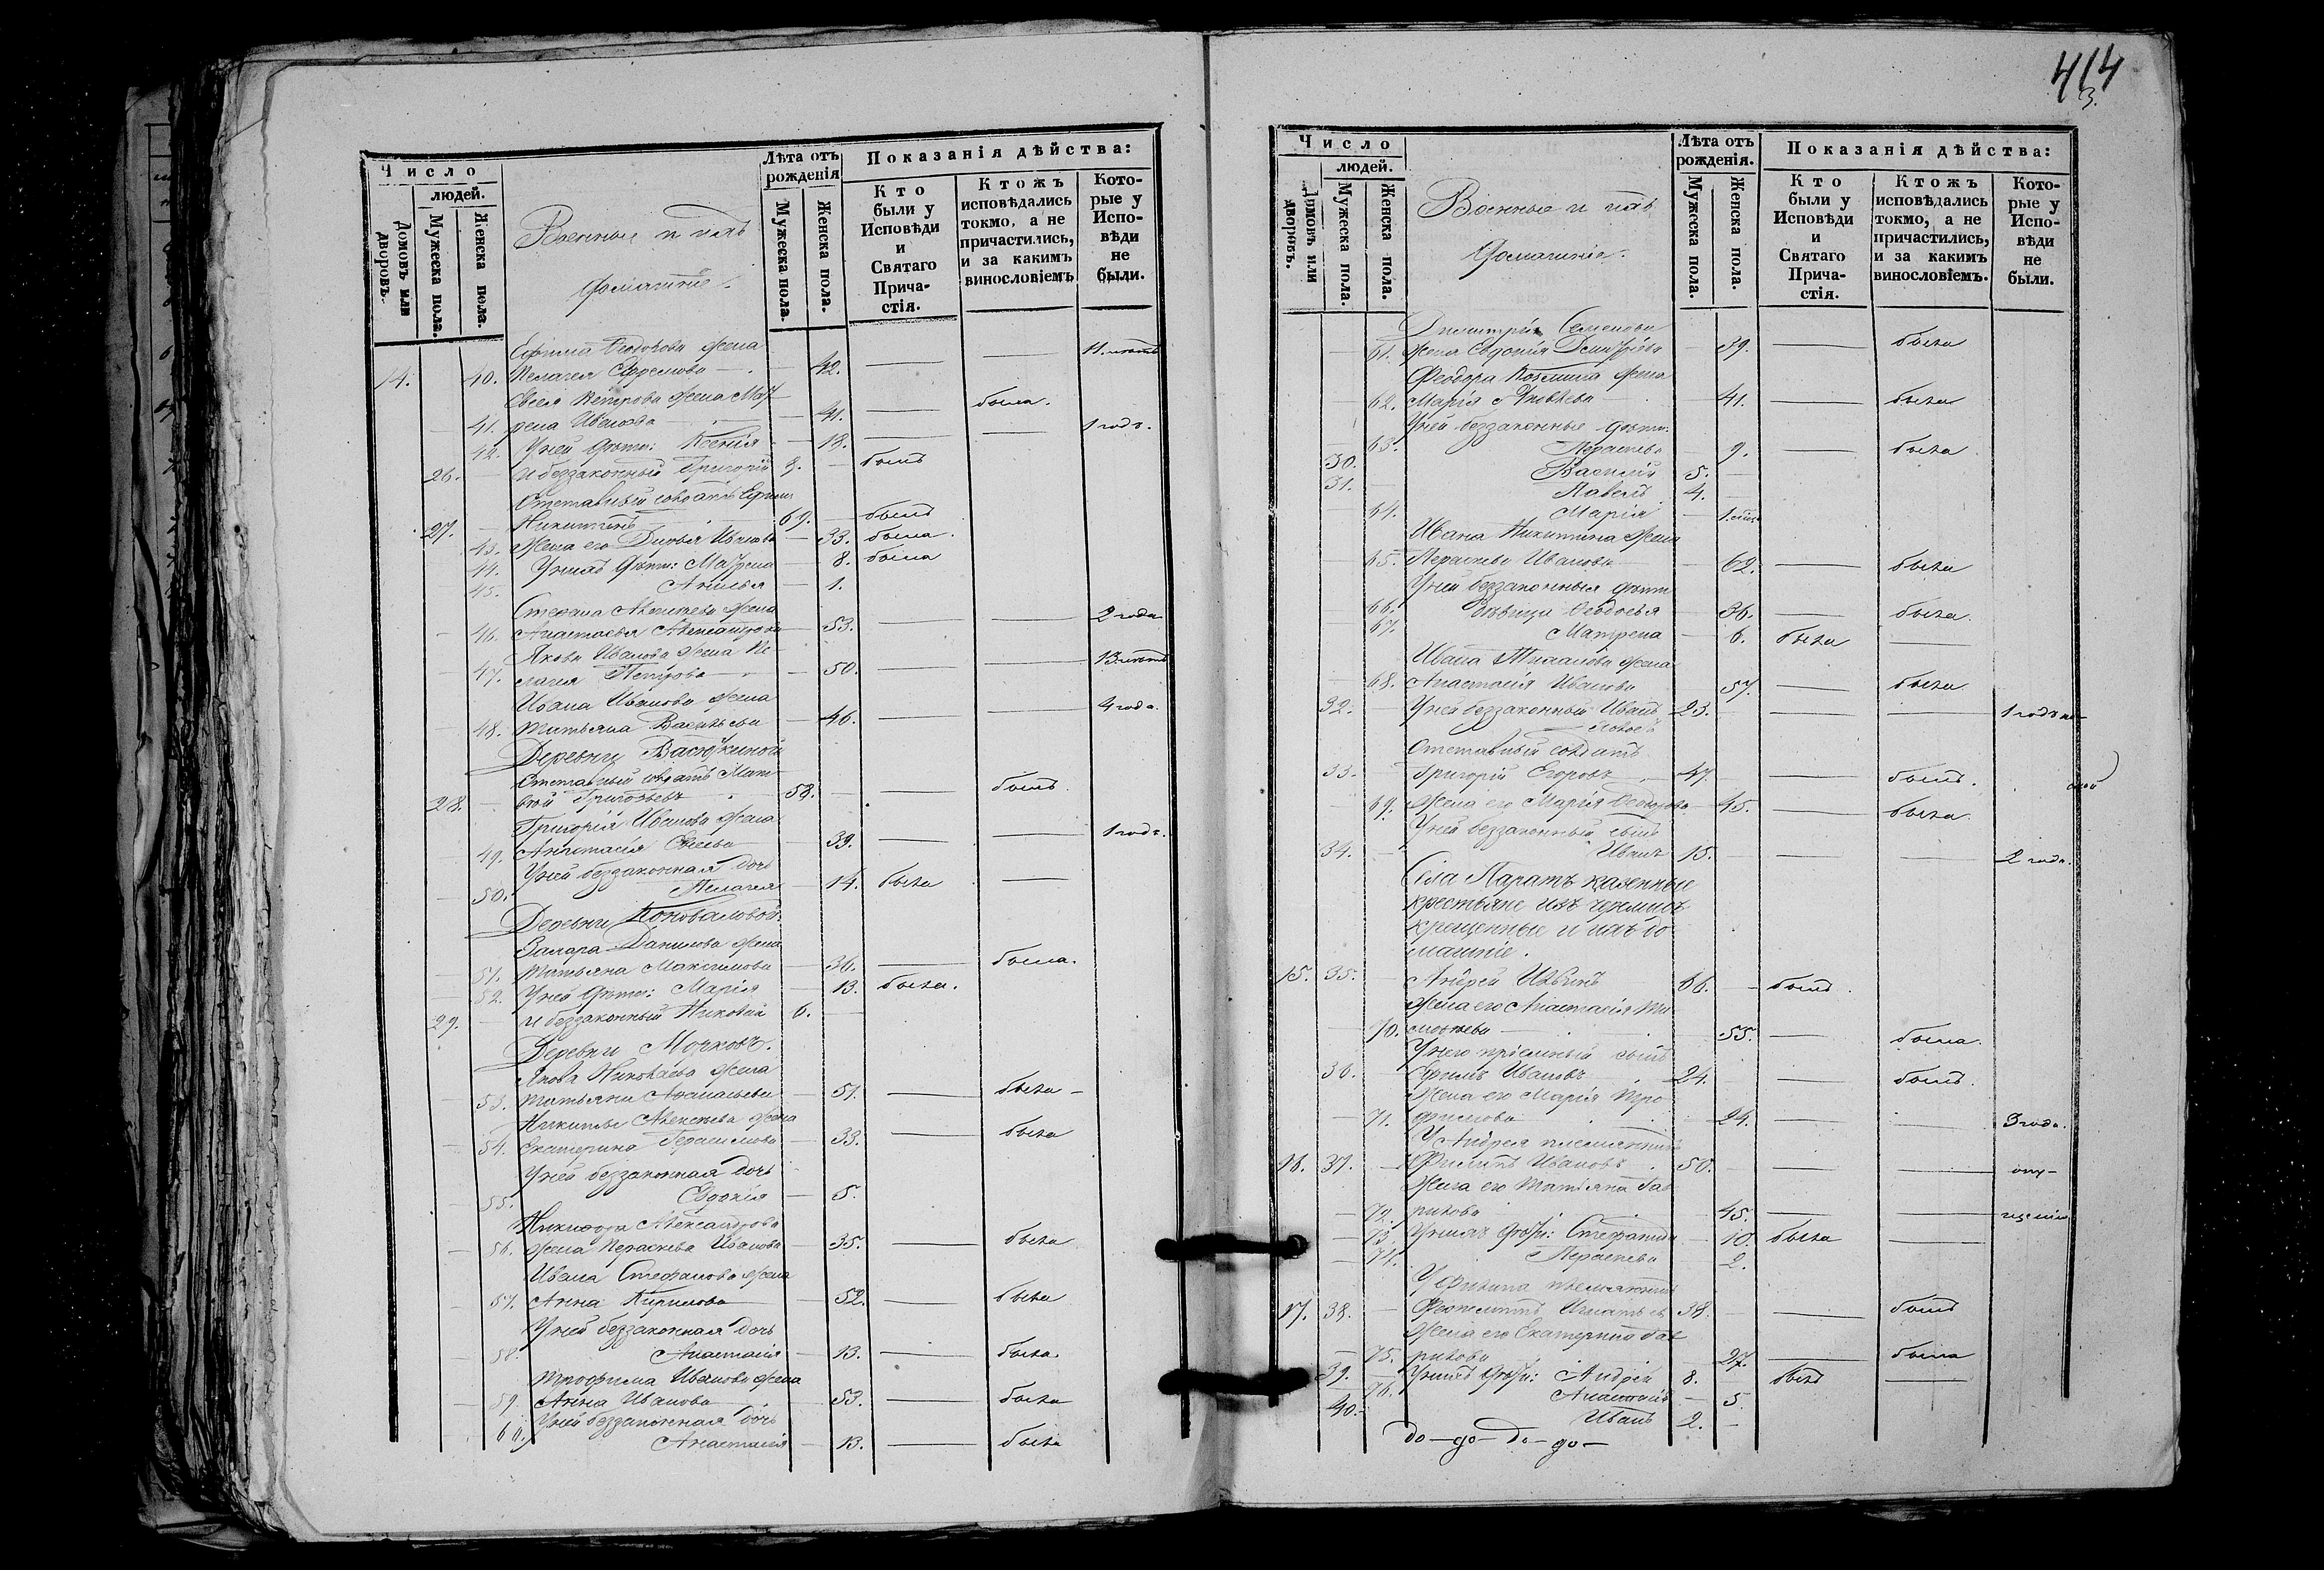 414
3.
Число
людей.
Домовъ или дворовъ.
Мужеска пола.
Женска пола.
Военные и ихъ
домашніе.
Лѣта отъ рожденія
Мужеска пола.
Женска пола.
Показанія дѣйства:
Кто были у Исповѣди и Святаго Причастія.
Ктожъ исповѣдались токмо, а не причастились, и за какимъ винословіемъ
Которые у Исповѣди не были.
Ефима Ѳедорова жена
14. 40. Пелагея Ефремова 42. — — 11. лѣтъ
Евсея Петрова жена Мат-
41. рена Иванова 41. — была.
42. У ней дѣти: Ксенія 18. — — 1 годъ.
26. и беззаконный Григорій 9. былъ
Отставный солдатъ Ефимъ
27. Никитинъ 69. былъ
43. Жена его Дарья Иванова 33. была.
44. У нихъ дѣти: Матрена 8. была
45. 1.
Степана Алексѣева жена
46. Анастасья Александрова 53. — — 2 года
Якова Иванова жена Пе-
47. лагея Петрова 50. — — 13 лѣтъ
Ивана Иванова жена
48. Татьяна Васильева 46. — — 4 года.
Деревни Васюткиной
Отставный солдатъ Мат-
28. вѣй Григорьевъ 58. — былъ.
Григорія Иванова жена
49. Анастасія 39. — — 1 годъ.
У ней беззаконная дочь
50. Пелагея 14. была —
Деревни Коноваловой.
Захара Данилова жена
51. Татьяна Максимова 36. — была.
52. У ней дѣти: Марія 13. была.
29. и беззаконный Николай 6.
Деревни Мочковъ.
Якова Николаева жена
53. Татьяна Афанасьева 51. — была
Никиты Алексѣева жена
54. Екатерина Герасимова 33. — была
У ней беззаконная дочь
55. Евдокія 5.
Никифора Александрова
56. жена Параскева Иванова 35. — была
Ивана Стефанова жена
57. Анна Кирилова 52. — была
У ней беззаконная дочь
58. Анастасія 13. — была.
Трофима Иванова жена
59. Анна Иванова 53. — была
У ней беззаконная дочь
60. Анастасія 13. — была
Число
людей.
Домовъ или дворовъ.
Мужеска пола.
Женска пола.
Военные и ихъ
домашніе.
Лѣта отъ рожденія.
Мужеска пола.
Женска пола.
Показанія дѣйства:
Кто были у Исповѣди и Святаго Причастія.
Ктожъ исповѣдались токмо, а не причастились, и за какимъ винословіемъ.
Которые у Исповѣди не были.
Димитрія Семенова
61. жена Евдокія Дмитріева 39. — была
Феодора Козмина жена
62. Марія Яковлева 41. — была
У ней беззаконные дѣти:
63. Параскева 9. — была
30. Василій 5.
31. Павелъ 4.
64. Марія
Ивана Никитина жена
65. Параскева Иванова 62. — была
У ней беззаконныя дѣти
66. Дѣвица Ѳеодосья 36. — была.
67. Матрена 6. была —
Ивана жена
68. Анастасія Иванова 57. — была
32. У ней беззаконный Иванъ 23. — — 1 годъ
Отставный солдатъ
33. Григорій Егоровъ 47. — былъ.
69. Жена его Марія Ѳеодорова 45. — была.
У ней беззаконный сынъ
34. Иванъ 15. — — 2 года.
Села Паратъ казенные
крестьяне изъ черемисъ
крещенные и ихъ до-
машніе.
15. 35. Андрей 66. былъ.
Жена его Анастасія Ти-
70. моѳеева 55. — была.
У него пріемный сынъ
36. Ефимъ Ивановъ 24. — былъ.
Жена его Марія Тро-
71. фимова 24. — — 3 года.
У Андрея племянникъ
16. 37. Филипъ Ивановъ 50. — —
Жена его Татьяна Гав-
72. рилова 45. —
73. У нихъ дѣти: Стефанида 10. была —
74. Параскева 2.
У Филипа племянникъ
17. 38. Феоктистъ Игнатьевъ 38. — былъ
Жена его Екатерина Гав-
75. рилова 27. — была
39. У нихъ дѣти: Андрей 8. былъ —
76. Анастасія 5.
40. Иванъ 2.
до—до—до—до—